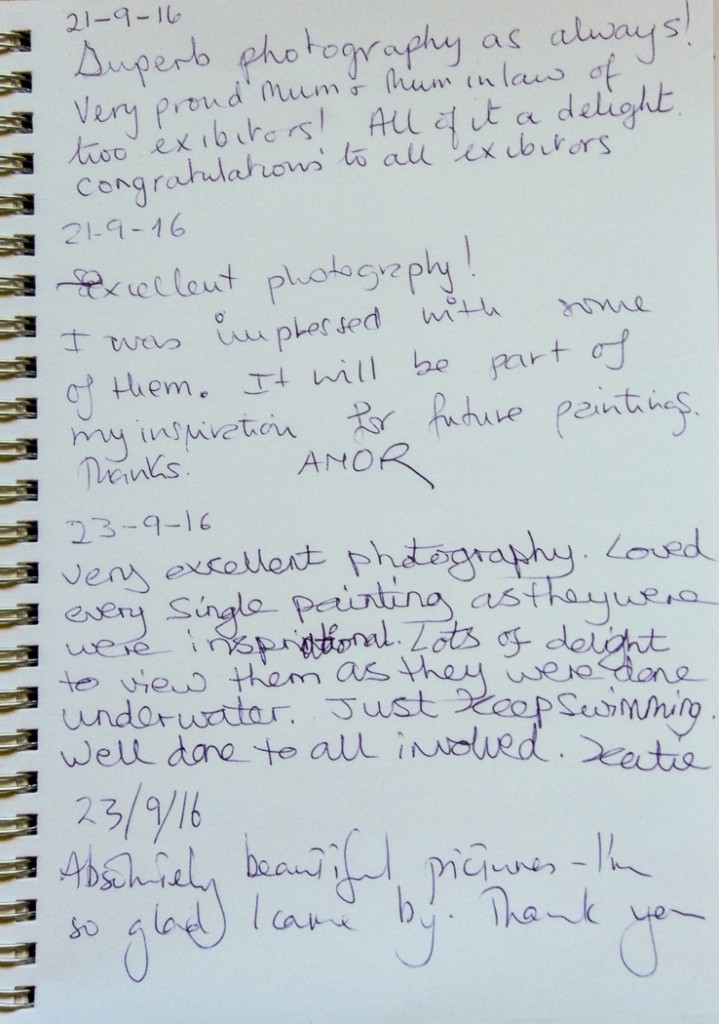 21-9-16
Superb photography as always!
Very proud Mum & Mum in law of
two exibitors! All of it a delight.
congratulations to all exibitors
21-9-16
Excellent photography!
I was impressed with some
of them. It will be part of
my inspiration for future paintings.
Thanks. AMOR
23-9-16
Very excellent photography. Loved
every single painting as they were
were inspirational. Lots of delight
to view them as they were done
underwater. Just Keep Swimming.
Well done to all involved. Katie
23/9/16
Absolutely beautiful pictures - I'm
so glad I came by. Thank you